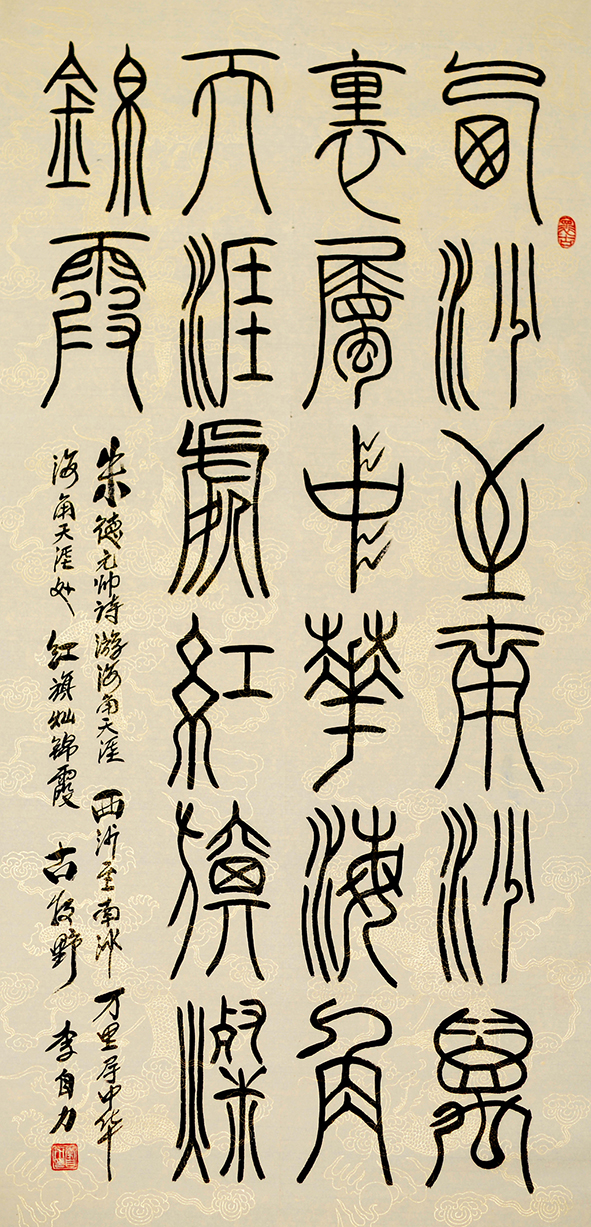 西沙至南沙萬
裏屬中華海角
天涯處紅旗燦
錦霞
朱德元帅诗游海角天涯 西沙至南沙 万里属中华
海角天涯处 红旗灿锦霞 古牧野 李自力